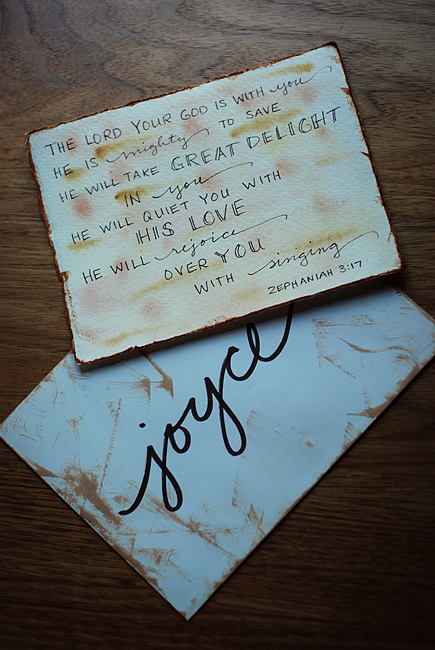 THE LORD YOUR GOD IS WITH you
HE IS mighty TO SAVE
HE WILL TAKE GREAT DELIGHT
IN you
HE WILL QUIET YOU WITH
HIS LOVE
HE WILL rejoice
OVER YOU
WITH singing
ZEPHANIAH 3:17
joyce